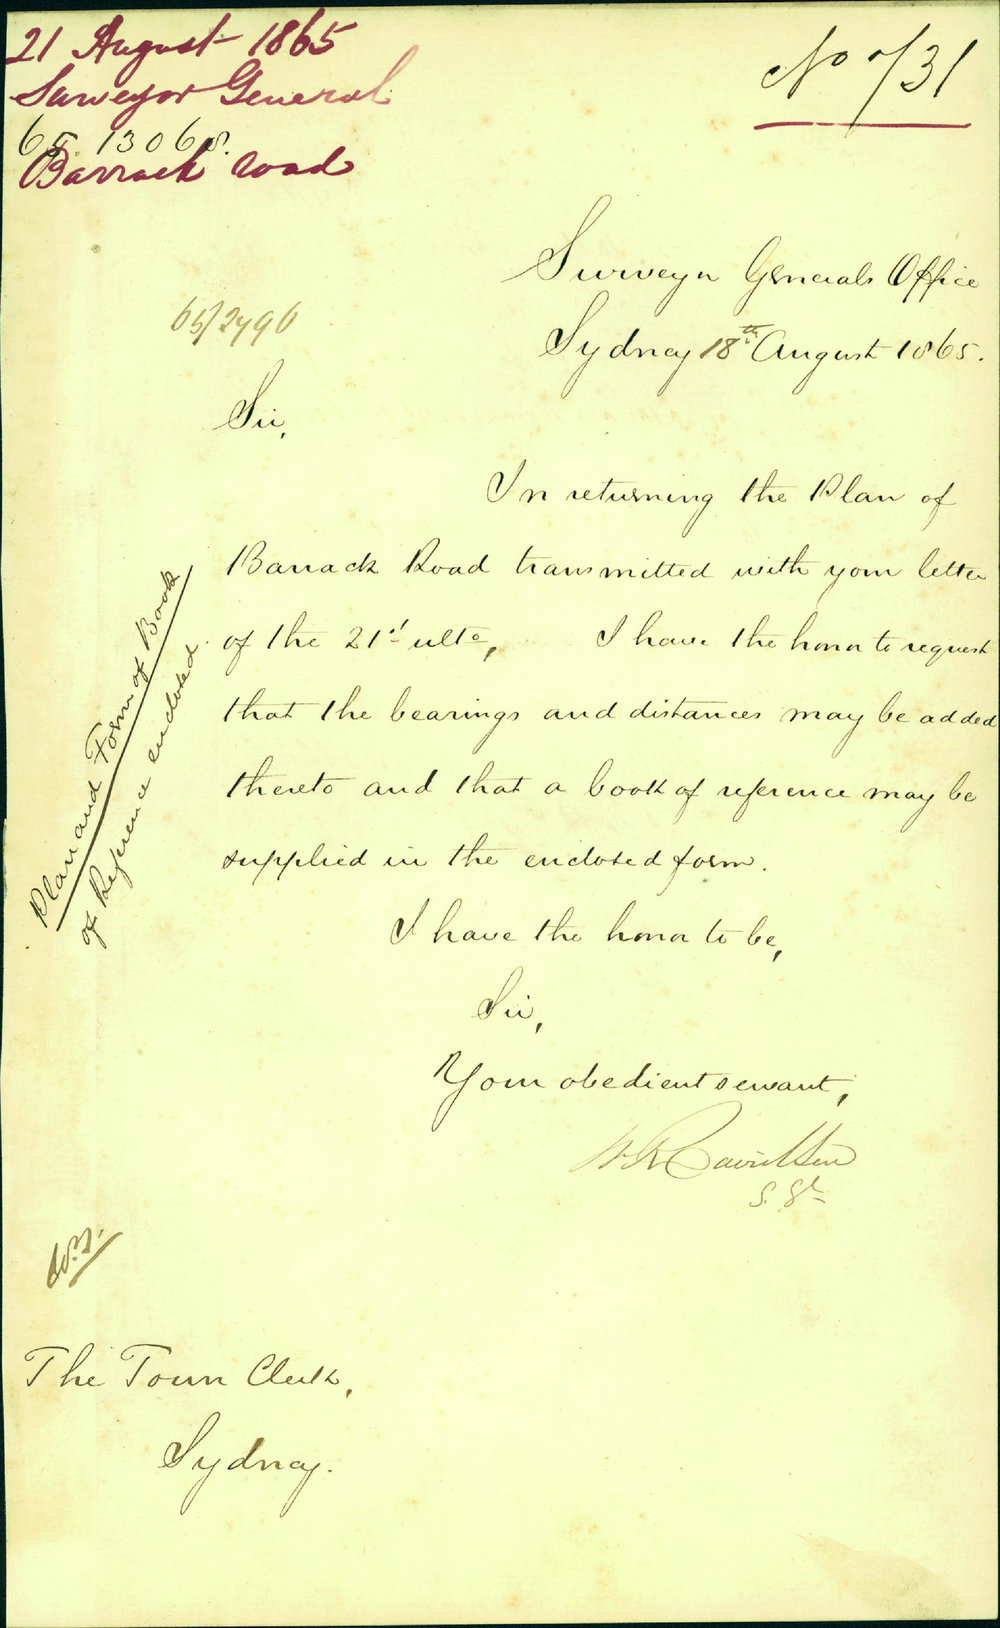 21 August 1865
Surveyor General
65. 13068.
Barrack Road
No 731
Surveyor Generals Office
65/2796
Sydney 18th August 1865.
Sir,
In returning the Plan of
Barrack Road transmitted with your letter
of the 21st ulto, I have the honor to request
that the bearings and distances may be added
thereto and that a book of reference may be
supplied in the enclosed form.
Plan and Form of Book
of Reference enclosed.
I have the honor to be,
Sir,
Your obedient servant,
W R Davidson
S. Gl
The Town Clerk,
Sydney.